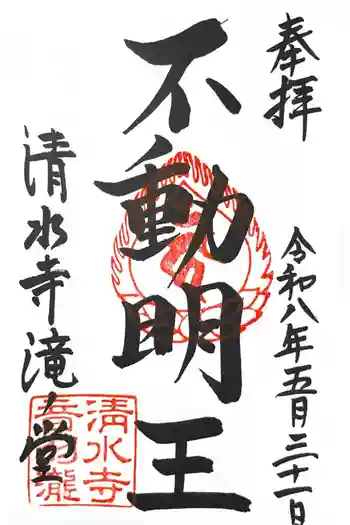 奉拝
令和八年五月三十一日
不動明王
清水寺滝ノ堂
清水寺
音羽瀧